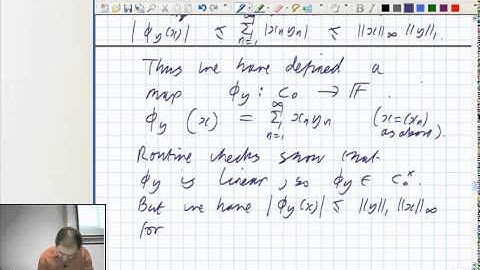 |ϕy(x)| ≤ ∞Σn=1 |xn yn| ≤ ||x||∞ ||y||1.
Thus we have defined a
map ϕy : c0 → F.
ϕy (x) = ∞Σn=1 xn yn (x=(xn)
as above).
Routine checks show that
ϕy is linear, so ϕy ∈ c0*.
But we have |ϕy(x)| ≤ ||y||1 ||x||∞
for